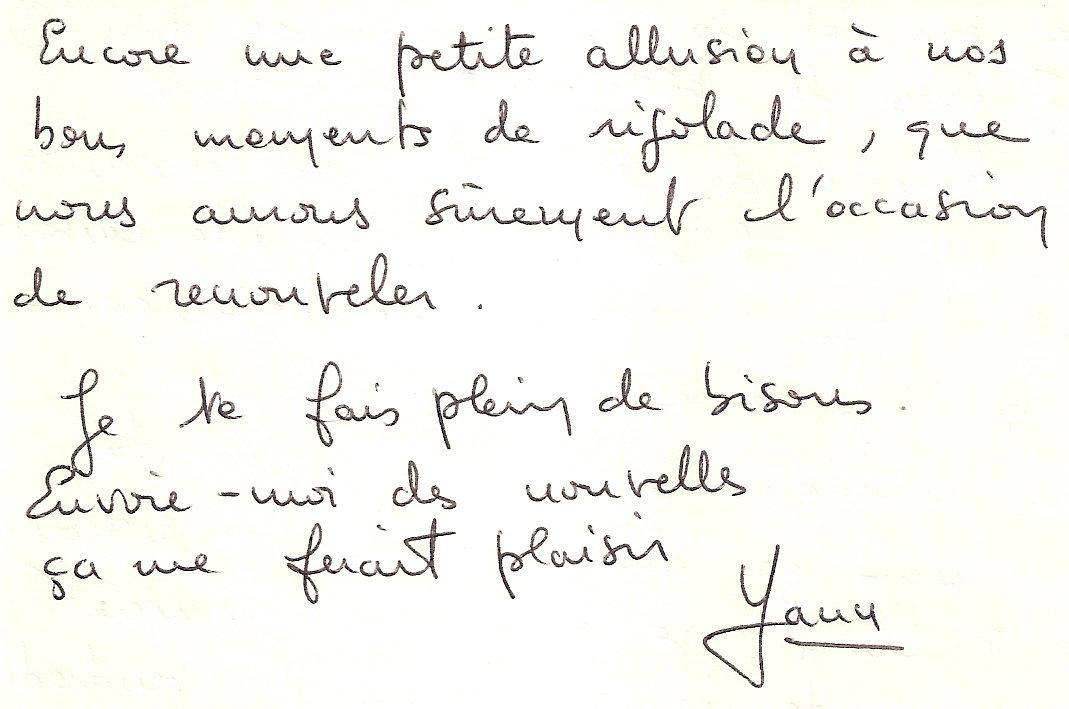 Encore une petite allusion à nos
bons moments de rigolade, que
nous aurons sûrement l'occasion
de renouveler.
Je te fais plein de bisous.
Envoie-moi des nouvelles
ça me ferait plaisir
Yann